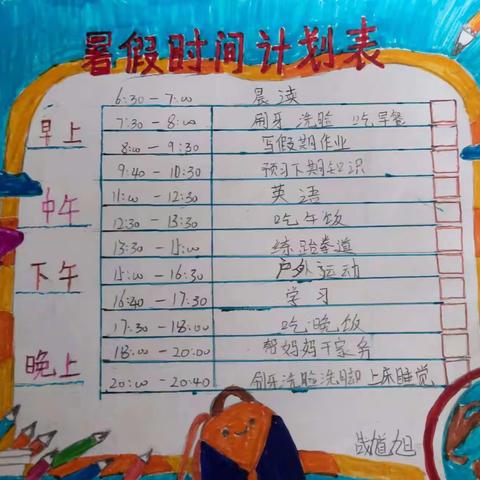 暑假时间计划表
6:30 - 7:00 晨读
早上
7:30 - 8:00 刷牙 洗脸 吃早餐
8:00 - 9:30 写假期作业
9:40 - 10:30 预习下期知识
中午
11:00 - 12:30 英语
12:30 - 13:30 吃午饭
13:30 - 15:00 练跆拳道
下午
15:00 - 16:30 户外运动
16:40 - 17:30 学习
17:30 - 18:00 吃晚饭
晚上
18:00 - 20:00 帮妈妈干家务
20:00 - 20:40 刷牙洗脸洗脚上床睡觉